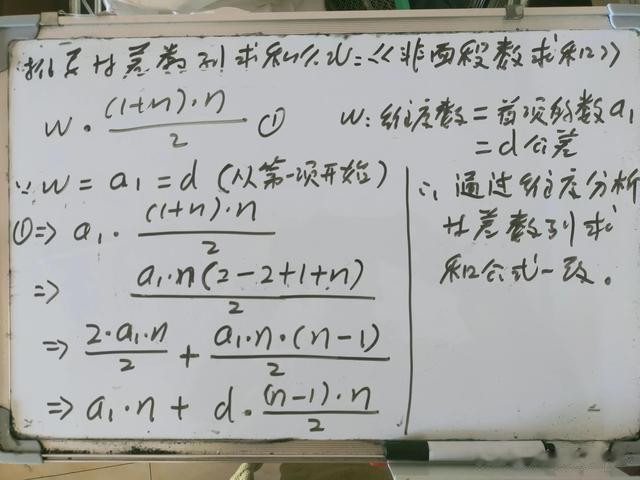 推导等差数列求和公式:《非画段数求和》
w·(1+n)·n/2 ①
w:维度数=首项的数a₁
=d公差
∵ w=a₁=d (从第一项开始)
①=> a₁·(1+n)·n/2
=> a₁·n(2-2+1+n)/2
=> 2·a₁·n/2 + a₁·n·(n-1)/2
=> a₁·n + d·(n-1)·n/2
∴ 通过维度分析
等差数列求
和公式一致。